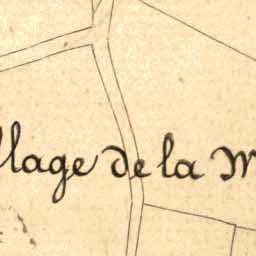 llage de la M